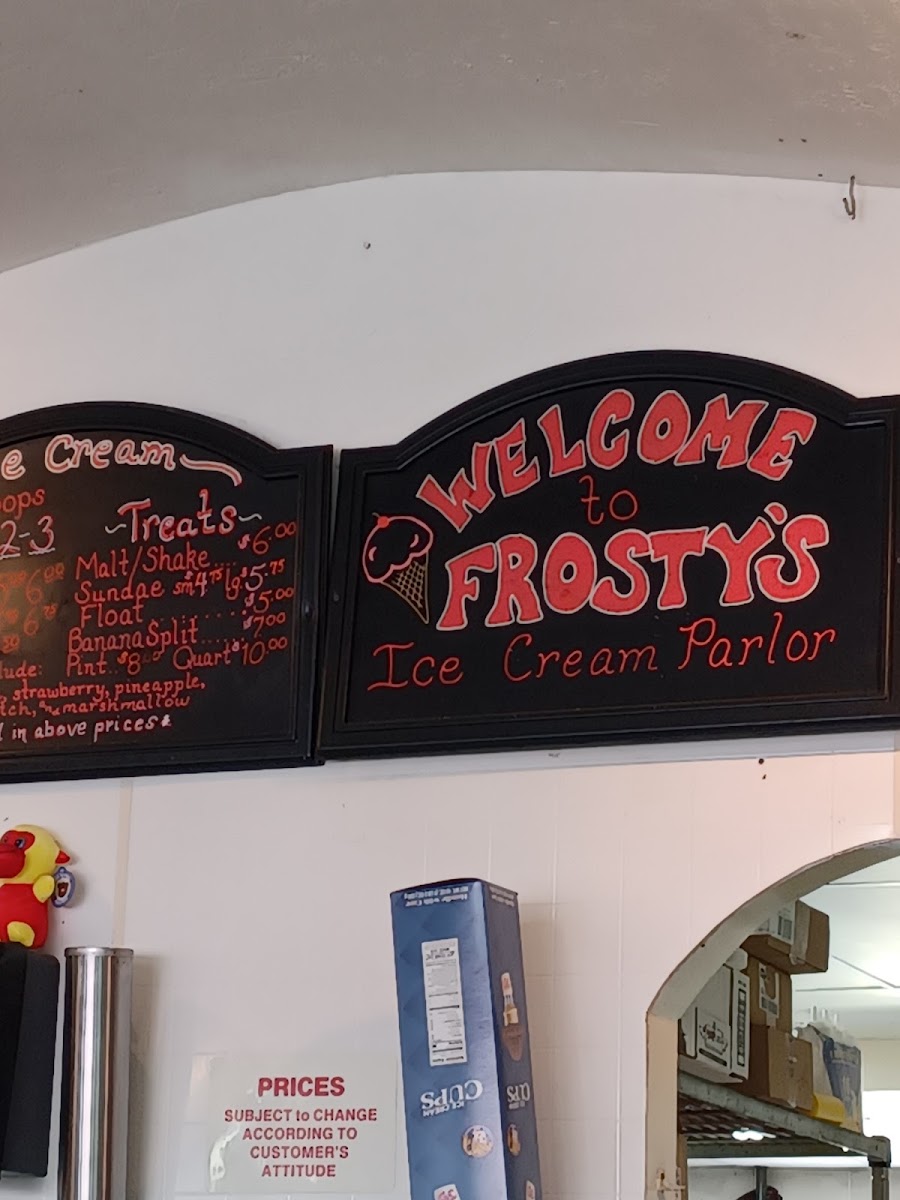 e Cream
oops
2-3
~Treats~
Malt/Shake.... $6.00
Sundae sm $4.75 lg $5.75
Float ......... $5.00
Banana Split...... $7.00
Pint.. $8.00 Quart $10.00
lude:
strawberry, pineapple,
tch, marshmallow
in above prices
WELCOME
to
FROSTY'S
Ice Cream Parlor
PRICES
SUBJECT to CHANGE
ACCORDING TO
CUSTOMER'S
ATTITUDE
Handle with Care
ICE CREAM
CUPS
CUPS